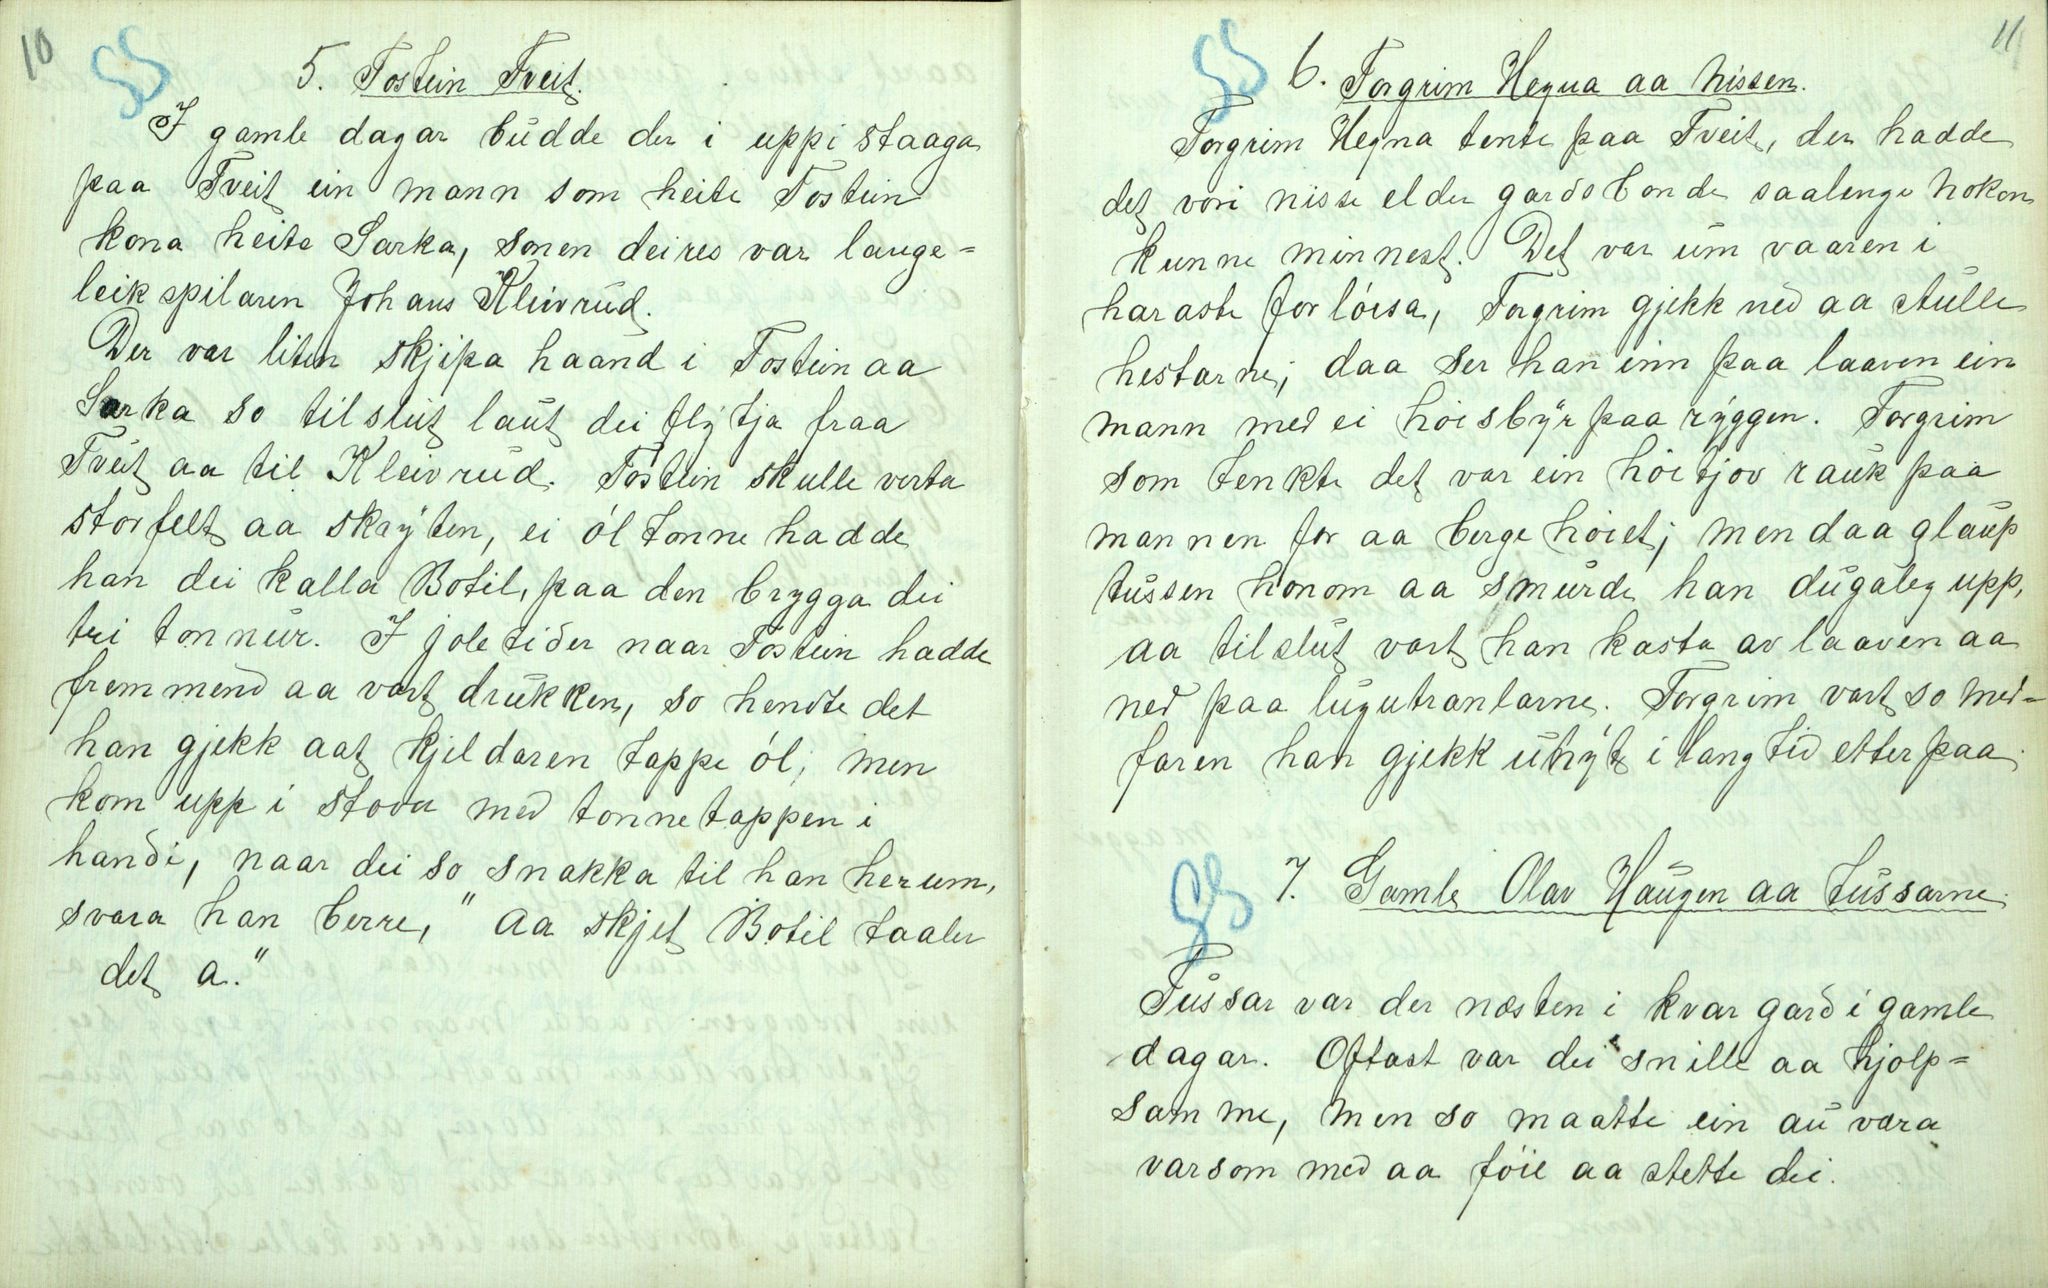 10
GS
5. Tostein Tveit.
I gamle dagar budde der i uppi staaga
paa Tveit ein mann som heite Tostein
kona heite Sarka, sonen deires var lange=
leikspilaren Johans Kleivrud.
Der var liten skjipa haand i Tostein aa
Sarka so tilslut laut dei flytja fraa
Tveit aa til Kleivrud. Tostein skulle verta
storfelt aa skrÿten, ei ól tonne hadde
han dei kalla Botil, paa den brygga dei
tri tonnur. I joletider naar Tostein hadde
fremmend aa vart drukken, so hendte det
han gjekk aat kjeldaren tappe ól; men
kom upp i stova med tonnetappen i
handi, naar dei so snakka til han herum,
svara han berre, "aa skjet Botil taaler
det a."
11
GS
6. Torgrim Hegna aa Nissen.
Torgrim Hegna tente paa Tveit, der hadde
det vori nisse elder gardsbonde saalenge nokon
kunne minnest. Det var um vaaren i
haraste forlóisa, Torgrim gjekk ned aa stulle
hestarne; daa ser han inn paa laaven ein
mann med ei hóisbÿr paa rÿggen. Torgrim
som tenkte det var ein hóitjov rauk paa
mannen for aa berge hóiet; men daa glaup
tussen honom aa smurde han dugaleg upp,
aa tilslut vart han kasta av laaven aa
ned paa lugutranlarne. Torgrim vart so med=
faren han gjekk uhÿt i lang tid etterpaa.
GS
7. Gamle Olav Haugen aa tussarne.
Tussar var der næsten i kvar gard i gamle
dagar. Oftast var dei snille aa hjolp=
samme, men so maatte ein au vera
varsom med aa fóie aa stette dei.